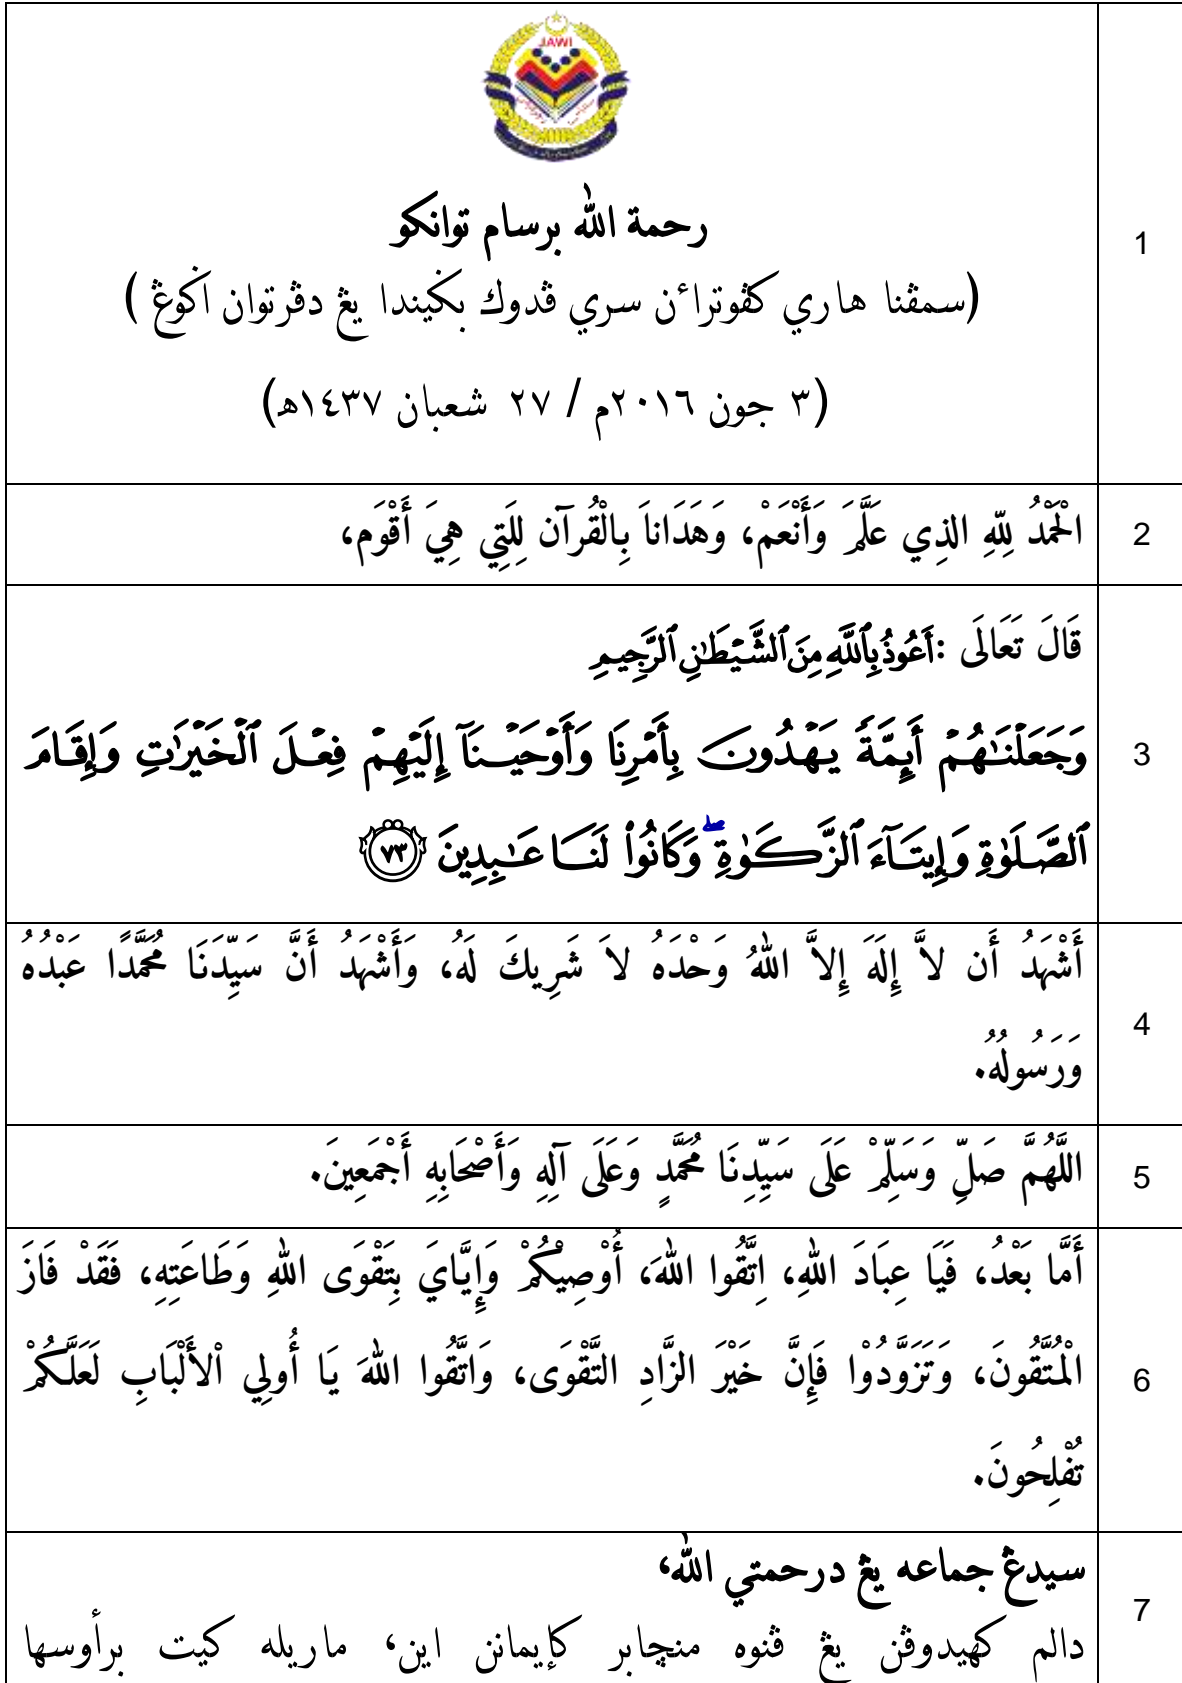 JAWI
رحمة الله برسام توانكو
(سمڤنا هاري كڤوتراءن سري ڤدوك بݢيندا يڠ دڤرتوان اݢوڠ )
(٣ جون ٢٠١٦م / ٢٧ شعبان ١٤٣٧ه)
1
الْحَمْدُ لِلّهِ الذِي عَلَّمَ وَأَنْعَمْ، وَهَدَاناَ بِالْقُرآن لِلَتِي هِيَ أَقْوَم،
2
قَالَ تَعَالَى :أَعُوذُ بِٱللَّهِ مِنَ ٱلشَّيْطَٰنِ ٱلرَّجِيمِ
وَجَعَلْنَٰهُمْ أَئِمَّةً يَهْدُونَ بِأَمْرِنَا وَأَوْحَيْنَآ إِلَيْهِمْ فِعْلَ ٱلْخَيْرَٰتِ وَإِقَامَ
3
ٱلصَّلَوٰةِ وَإِيتَآءَ ٱلزَّكَوٰةِ ۖ وَكَانُوا۟ لَنَا عَٰبِدِينَ ﴿٧٣﴾
أَشْهَدُ أَن لاَّ إِلَهَ إِلاَّ اللهُ وَحْدَهُ لاَ شَرِيكَ لَهُ، وَأَشْهَدُ أَنَّ سَيِّدَنَا مُحَمَّدًا عَبْدُه
4
وَرَسُولُهُ.
اللَّهُمَّ صَلِّ وَسَلِّمْ عَلَى سَيِّدِنَا مُحَمَّدٍ وَعَلَى آلِهِ وَأَصْحَابِهِ أَجْمَعِين.
5
أَمَّا بَعْدُ، فَيَا عِبَادَ اللهِ، اِتَّقُوا اللهَ، أُوْصِيْكُمْ وَإِيَّايَ بِتَقْوَى اللهِ وَطَاعَتِهِ، فَقَدْ فَازَ
الْمُتَّقُونَ، وَتَزَوَّدُوْا فَإِنَّ خَيْرَ الزَّادِ التَّقْوَى، وَاتَّقُوا اللهَ يَا أُولِي اْلأَلْبَابِ لَعَلَّكُمْ
6
تُفْلِحُونَ.
سيدڠ جماعه يڠ درحمتي الله،
7
دالم كهيدوڤن يڠ ڤنوه منچابر كإيمانن اين، ماريله كيت برأوسها